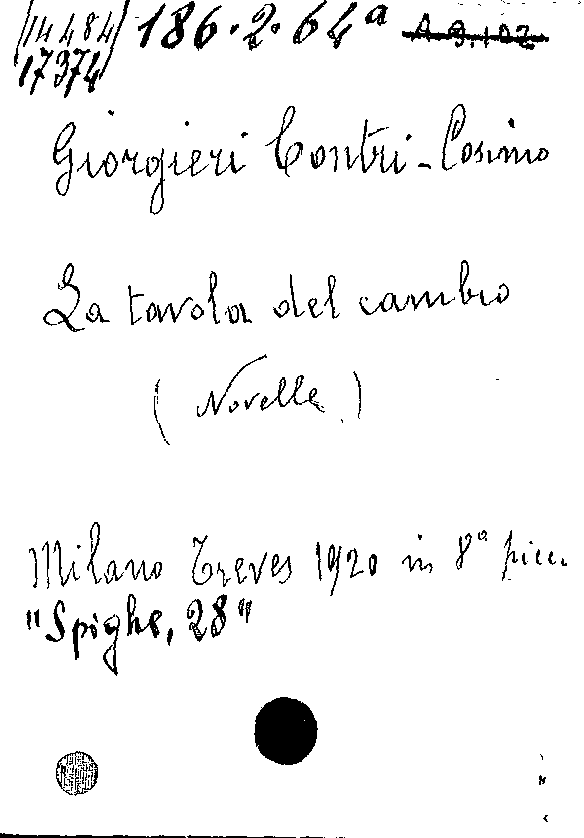 14484
17374
186.2.64ª A.9.102
Giorgieri Contri-Cosimo
La tavola del cambio
(Novelle.)
Milano Treves 1920 in 8º picc.
"Spighe, 28"